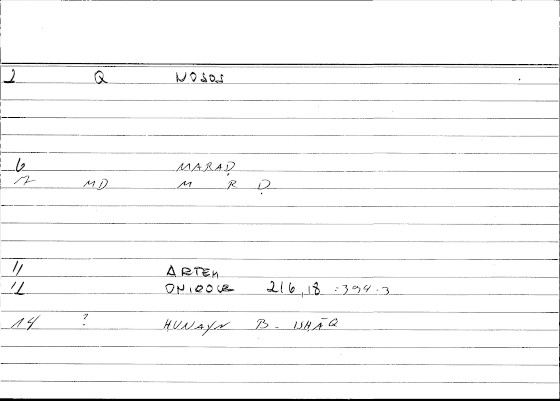 2 Q NOSOS
6 MARAḌ
7 MD M R Ḍ
11 ARTEM
12 216,18 :394.3
14 ? HUNAYN B. ISHĀQ